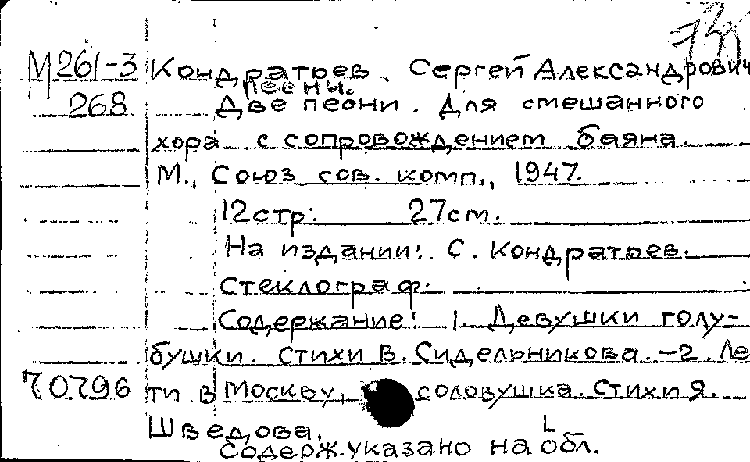 М261-3 Кондратьев. Сергей Александрович
Песни.
268 Две песни. Для смешанного
хора с сопровождением баяна.
М., Союз сов. комп., 1947.
12стр. 27см.
На издании: С. Кондратьев.
Стеклограф.
Содержание: 1. Девушки голу-
бушки. Стихи В. Сидельникова. -2. Ле-
70796 ти в Москву, соловушка. Стихи Я.
Шведова.
Содерж. указано на обл.